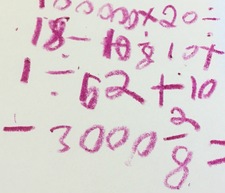 100000×20÷
18-10810+
1÷62+10
-3000-2
8=